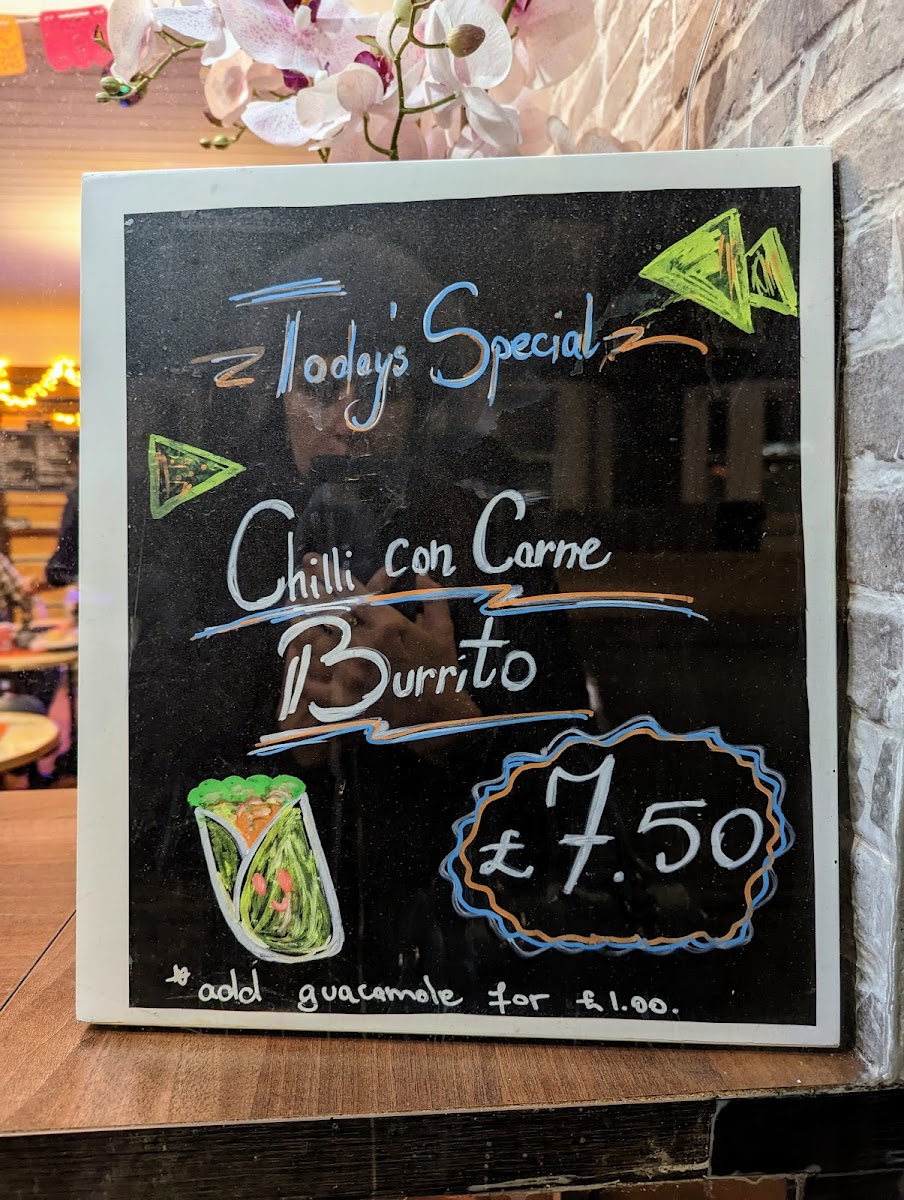 Today's Special
Chilli con Carne
Burrito
£7.50
*add guacamole for £1.00.